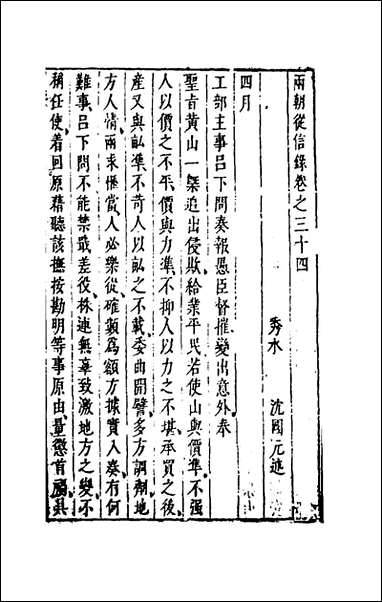 兩朝從信錄卷之三十四
秀水 沈國元述
四月
工部主事呂下問奏報愚臣督催變出意外奉
聖旨黃山一案追出侵欺給業平民若使山與價準不强
人以價之不平價與力準不抑人以力之不堪承買之後
產又與畝準不苛人以畝之不載委曲開譬多方調劑地
方人情兩求愜當人必樂從確類為額方據實入奏有何
難事呂下問不能禁戢差役株連無辜致激地方之變不
稱任使着回原籍聽該撫按勘明等事原由量懲首惡具